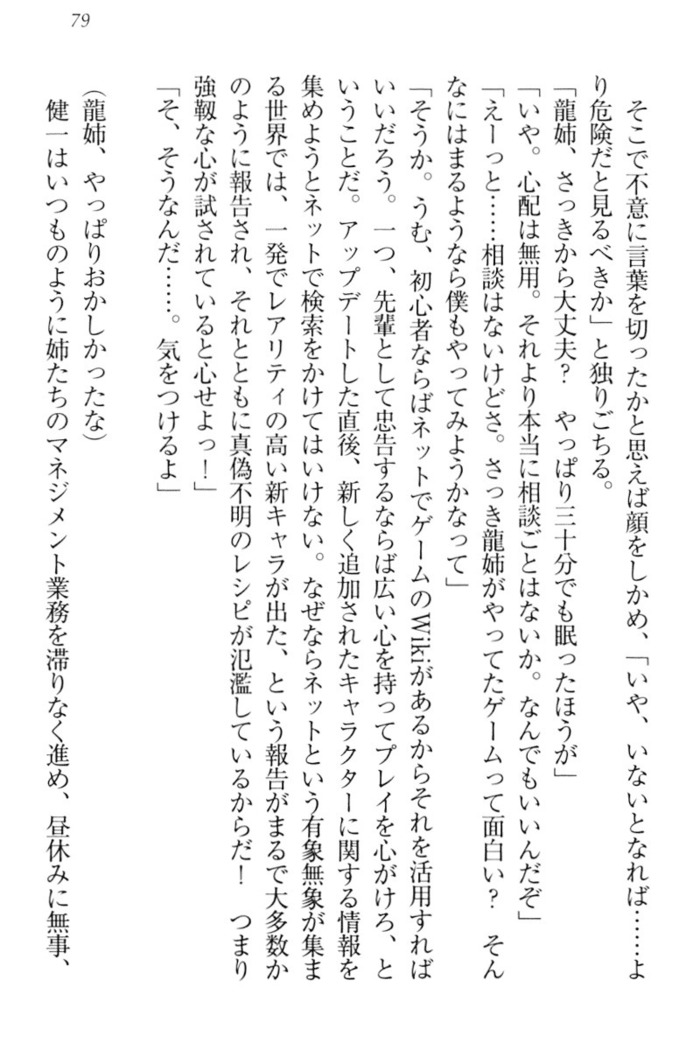 79
そこで不意に言葉を切ったかと思えば顔をしかめ、「いや、いないとなれば……よ
り危険だと見るべきか」と独りごちる。
「龍姉、さっきから大丈夫？　やっぱり三十分でも眠ったほうが」
「いや。心配は無用。それより本当に相談ごとはないか。なんでもいいんだぞ」
「えーっと……相談はないけどさ。さっき龍姉がやってたゲームって面白い？　そん
なにはまるようなら僕もやってみようかなって」
「そうか。うむ、初心者ならばネットでゲームのWikiがあるからそれを活用すれば
いいだろう。一つ、先輩として忠告するならば広い心を持ってプレイを心がけろ、と
いうことだ。アップデートした直後、新しく追加されたキャラクターに関する情報を
集めようとネットで検索をかけてはいけない。なぜならネットという有象無象が集ま
る世界では、一発でレアリティの高い新キャラが出た、という報告がまるで大多数か
のように報告され、それとともに真偽不明のレシピが氾濫しているからだ！　つまり
強靱な心が試されていると心せよっ！」
「そ、そうなんだ……。気をつけるよ」
（龍姉、やっぱりおかしかったな）
健一はいつものように姉たちのマネジメント業務を滞りなく進め、昼休みに無事、